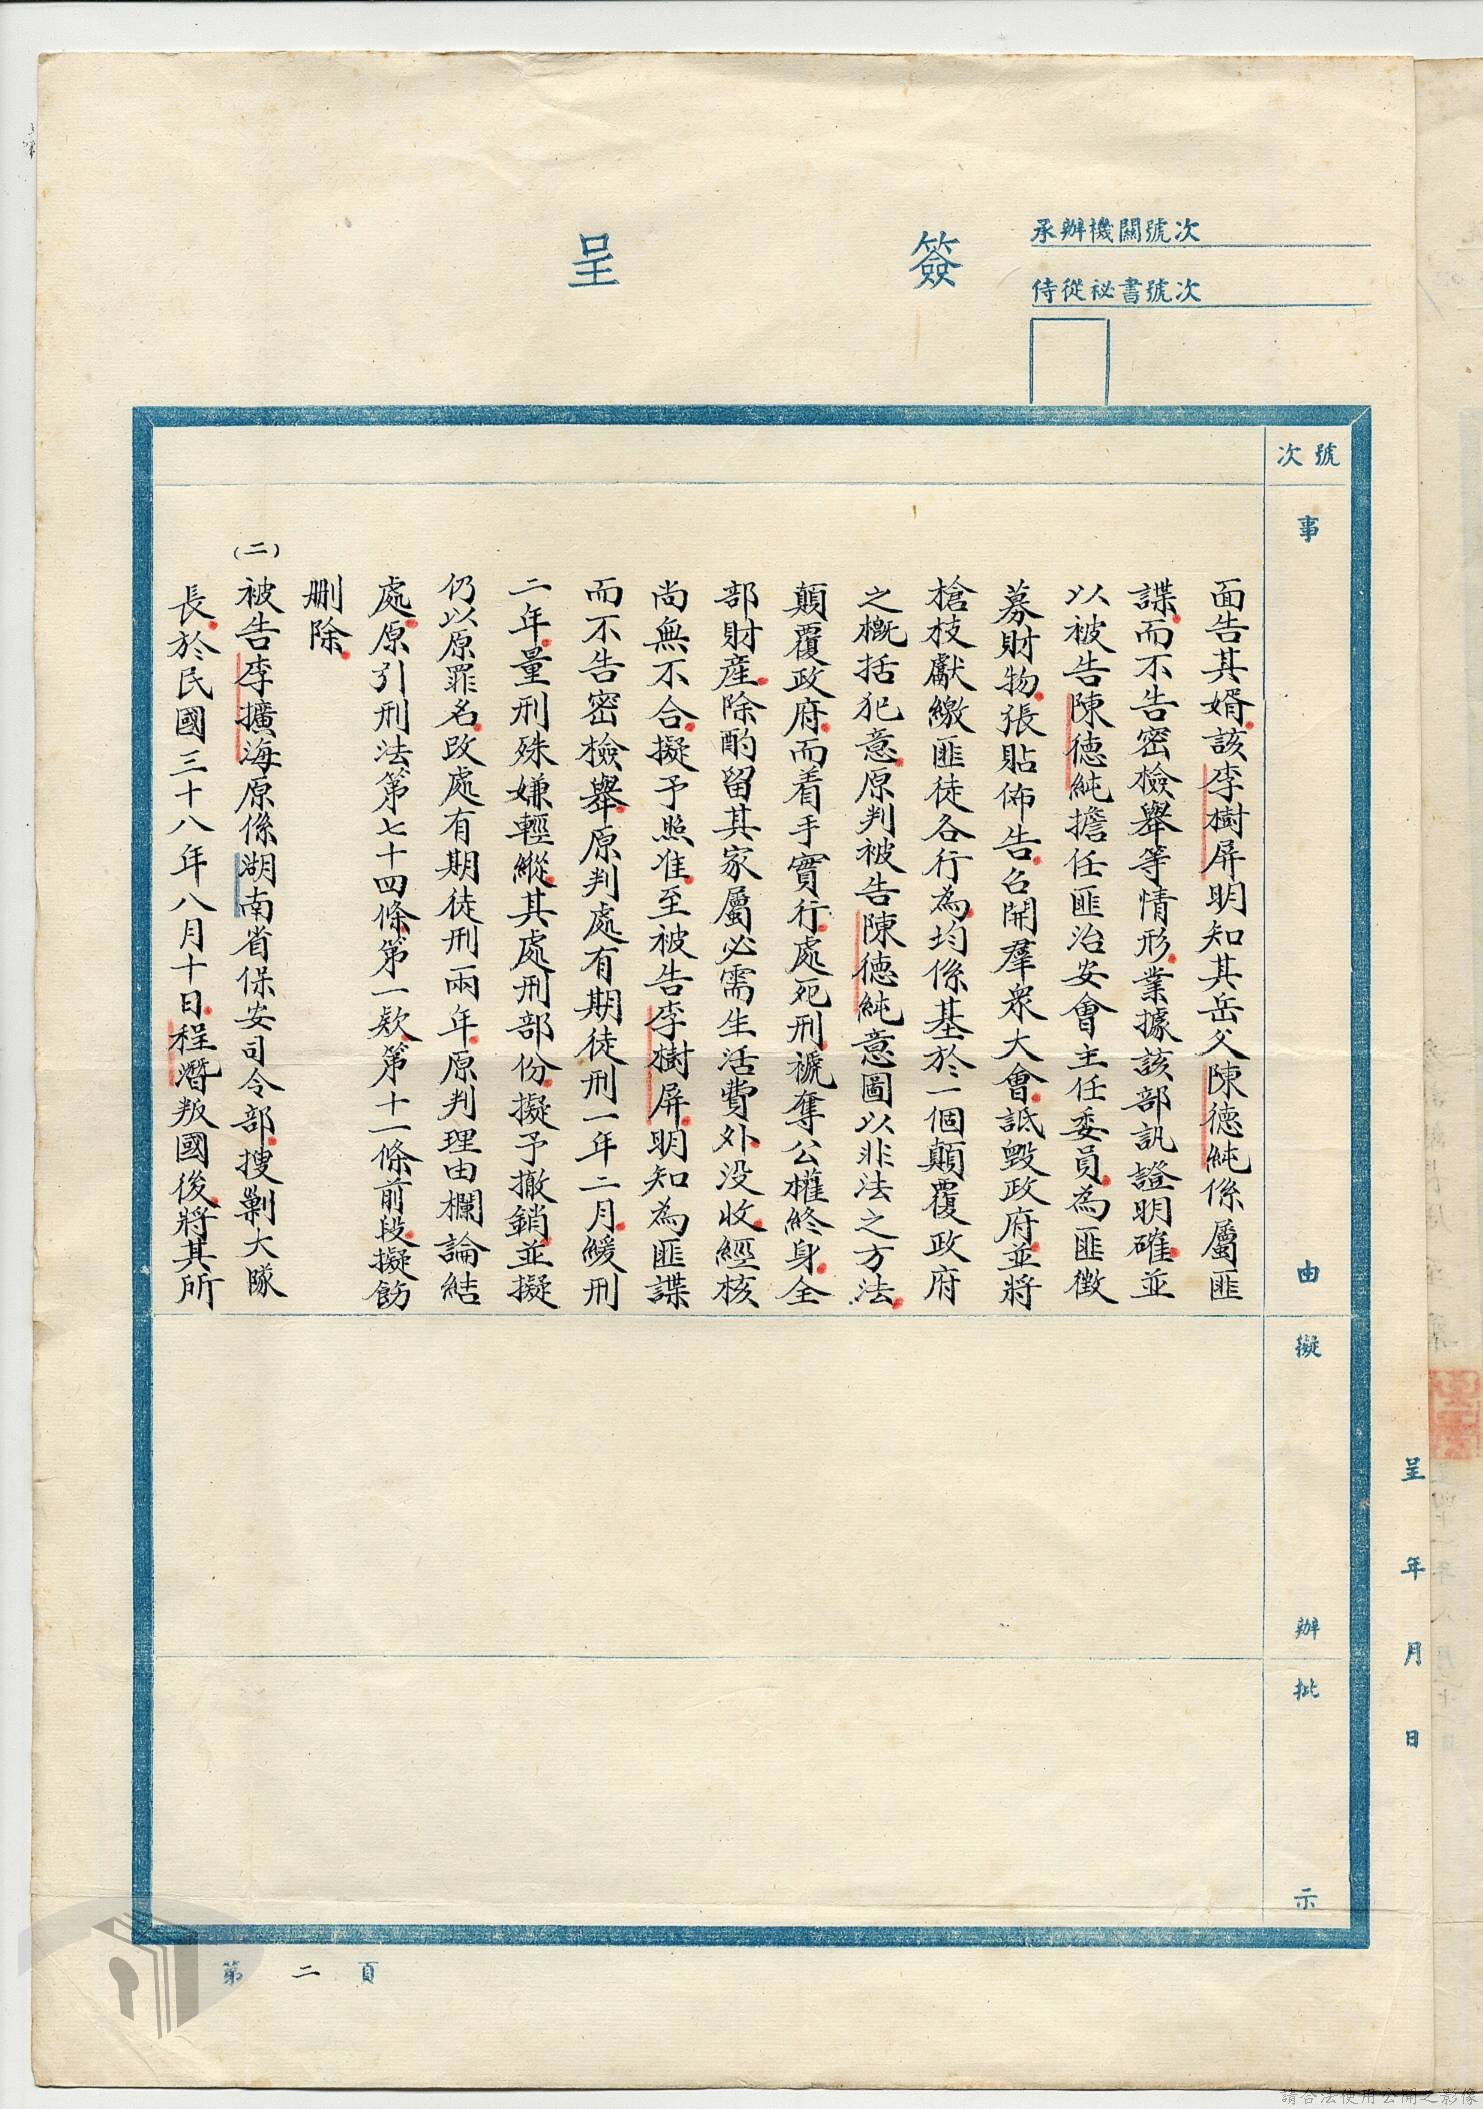 簽呈
承辦機關號次
侍從祕書號次
號次
事由
擬辦
批示
面告其婿該李樹屏明知其岳父陳德純係屬匪
諜而不告密檢舉等情形業據該部訊證明確並
以被告陳德純擔任匪治安會主任委員為匪徵
募財物張貼佈告召開羣眾大會詆毀政府並將
槍枝獻繳匪徒各行為均係基於一個顛覆政府
之概括犯意原判被告陳德純意圖以非法之方法
顛覆政府而着手實行處死刑褫奪公權終身全
部財產除酌留其家屬必需生活費外沒收經核
尚無不合擬予照准至被告李樹屏明知為匪諜
而不告密檢舉原判處有期徒刑一年二月緩刑
二年量刑殊嫌輕縱其處刑部份擬予撤銷並擬
仍以原罪名改處有期徒刑兩年原判理由欄論結
處原引刑法第七十四條第一款第十一條前段擬飭
刪除
(二)被告李擴海原係湖南省保安司令部搜剿大隊
長於民國三十八年八月十日程潛叛國後將其所
呈年月日
第二頁
請合法使用公開之影像